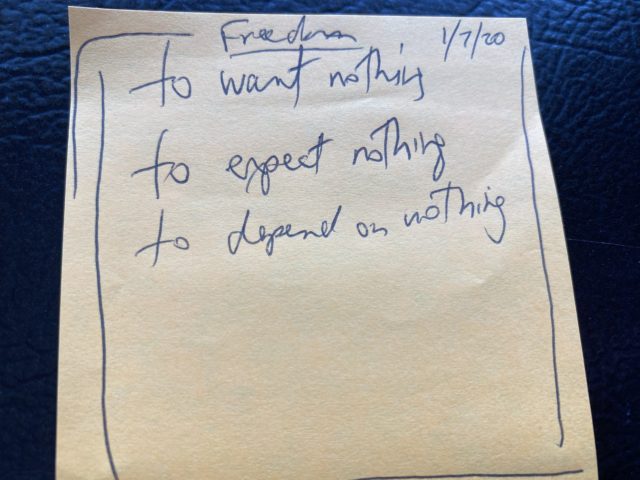 Freedom 1/7/20
to want nothing
to expect nothing
to depend on nothing